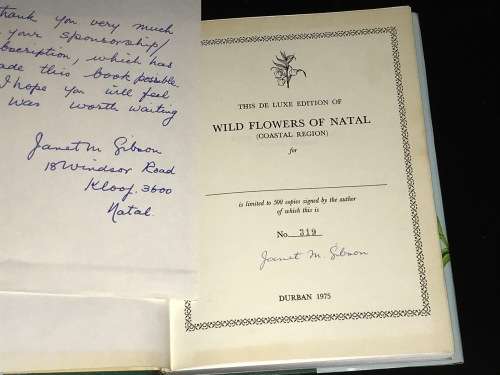 hank you very much
your sponsorship/
bscription, which has
ade this book possible.
I hope you will feel
was worth waiting
Janet M. Gibson
18 Windsor Road
Kloof. 3600
Natal.
THIS DE LUXE EDITION OF
WILD FLOWERS OF NATAL
(COASTAL REGION)
for
is limited to 500 copies signed by the author
of which this is
No. 319
Janet M. Gibson
DURBAN 1975